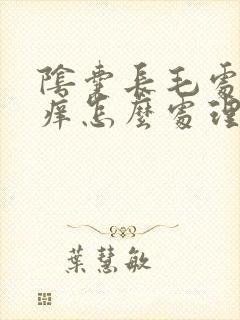 陰囊長毛處
癢怎麼處理
葉慧敏